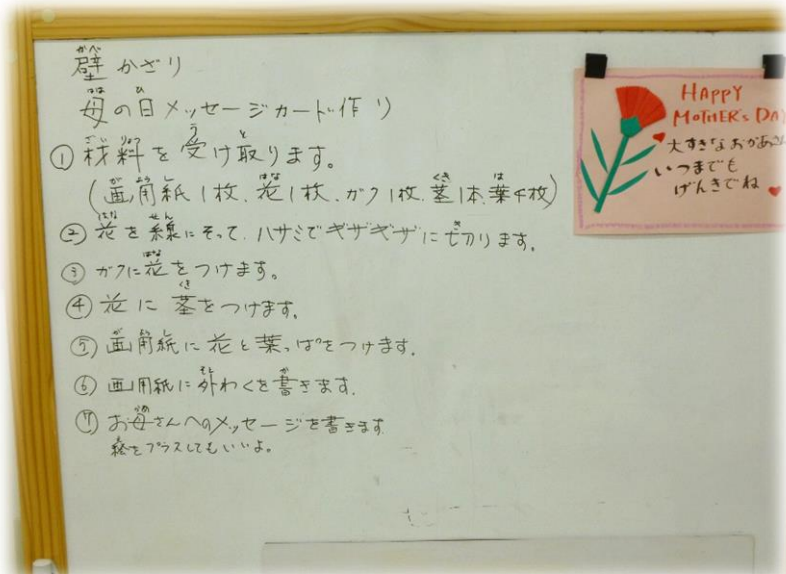 壁かざり
母の日メッセージカード作り
① 材料を受け取ります。
(画用紙1枚、花1枚、ガク1枚、茎1本、葉4枚)
② 花を線にそって、ハサミでギザギザに切ります。
③ ガクに花をつけます。
④ 花に茎をつけます。
⑤ 画用紙に花と葉っぱをつけます。
⑥ 画用紙に外わくを書きます。
⑦ お母さんへのメッセージを書きます
絵をプラスしてもいいよ。
HAPPY
MOTHER'S DAY
大すきなおかあさん
いつまでも
げんきでね